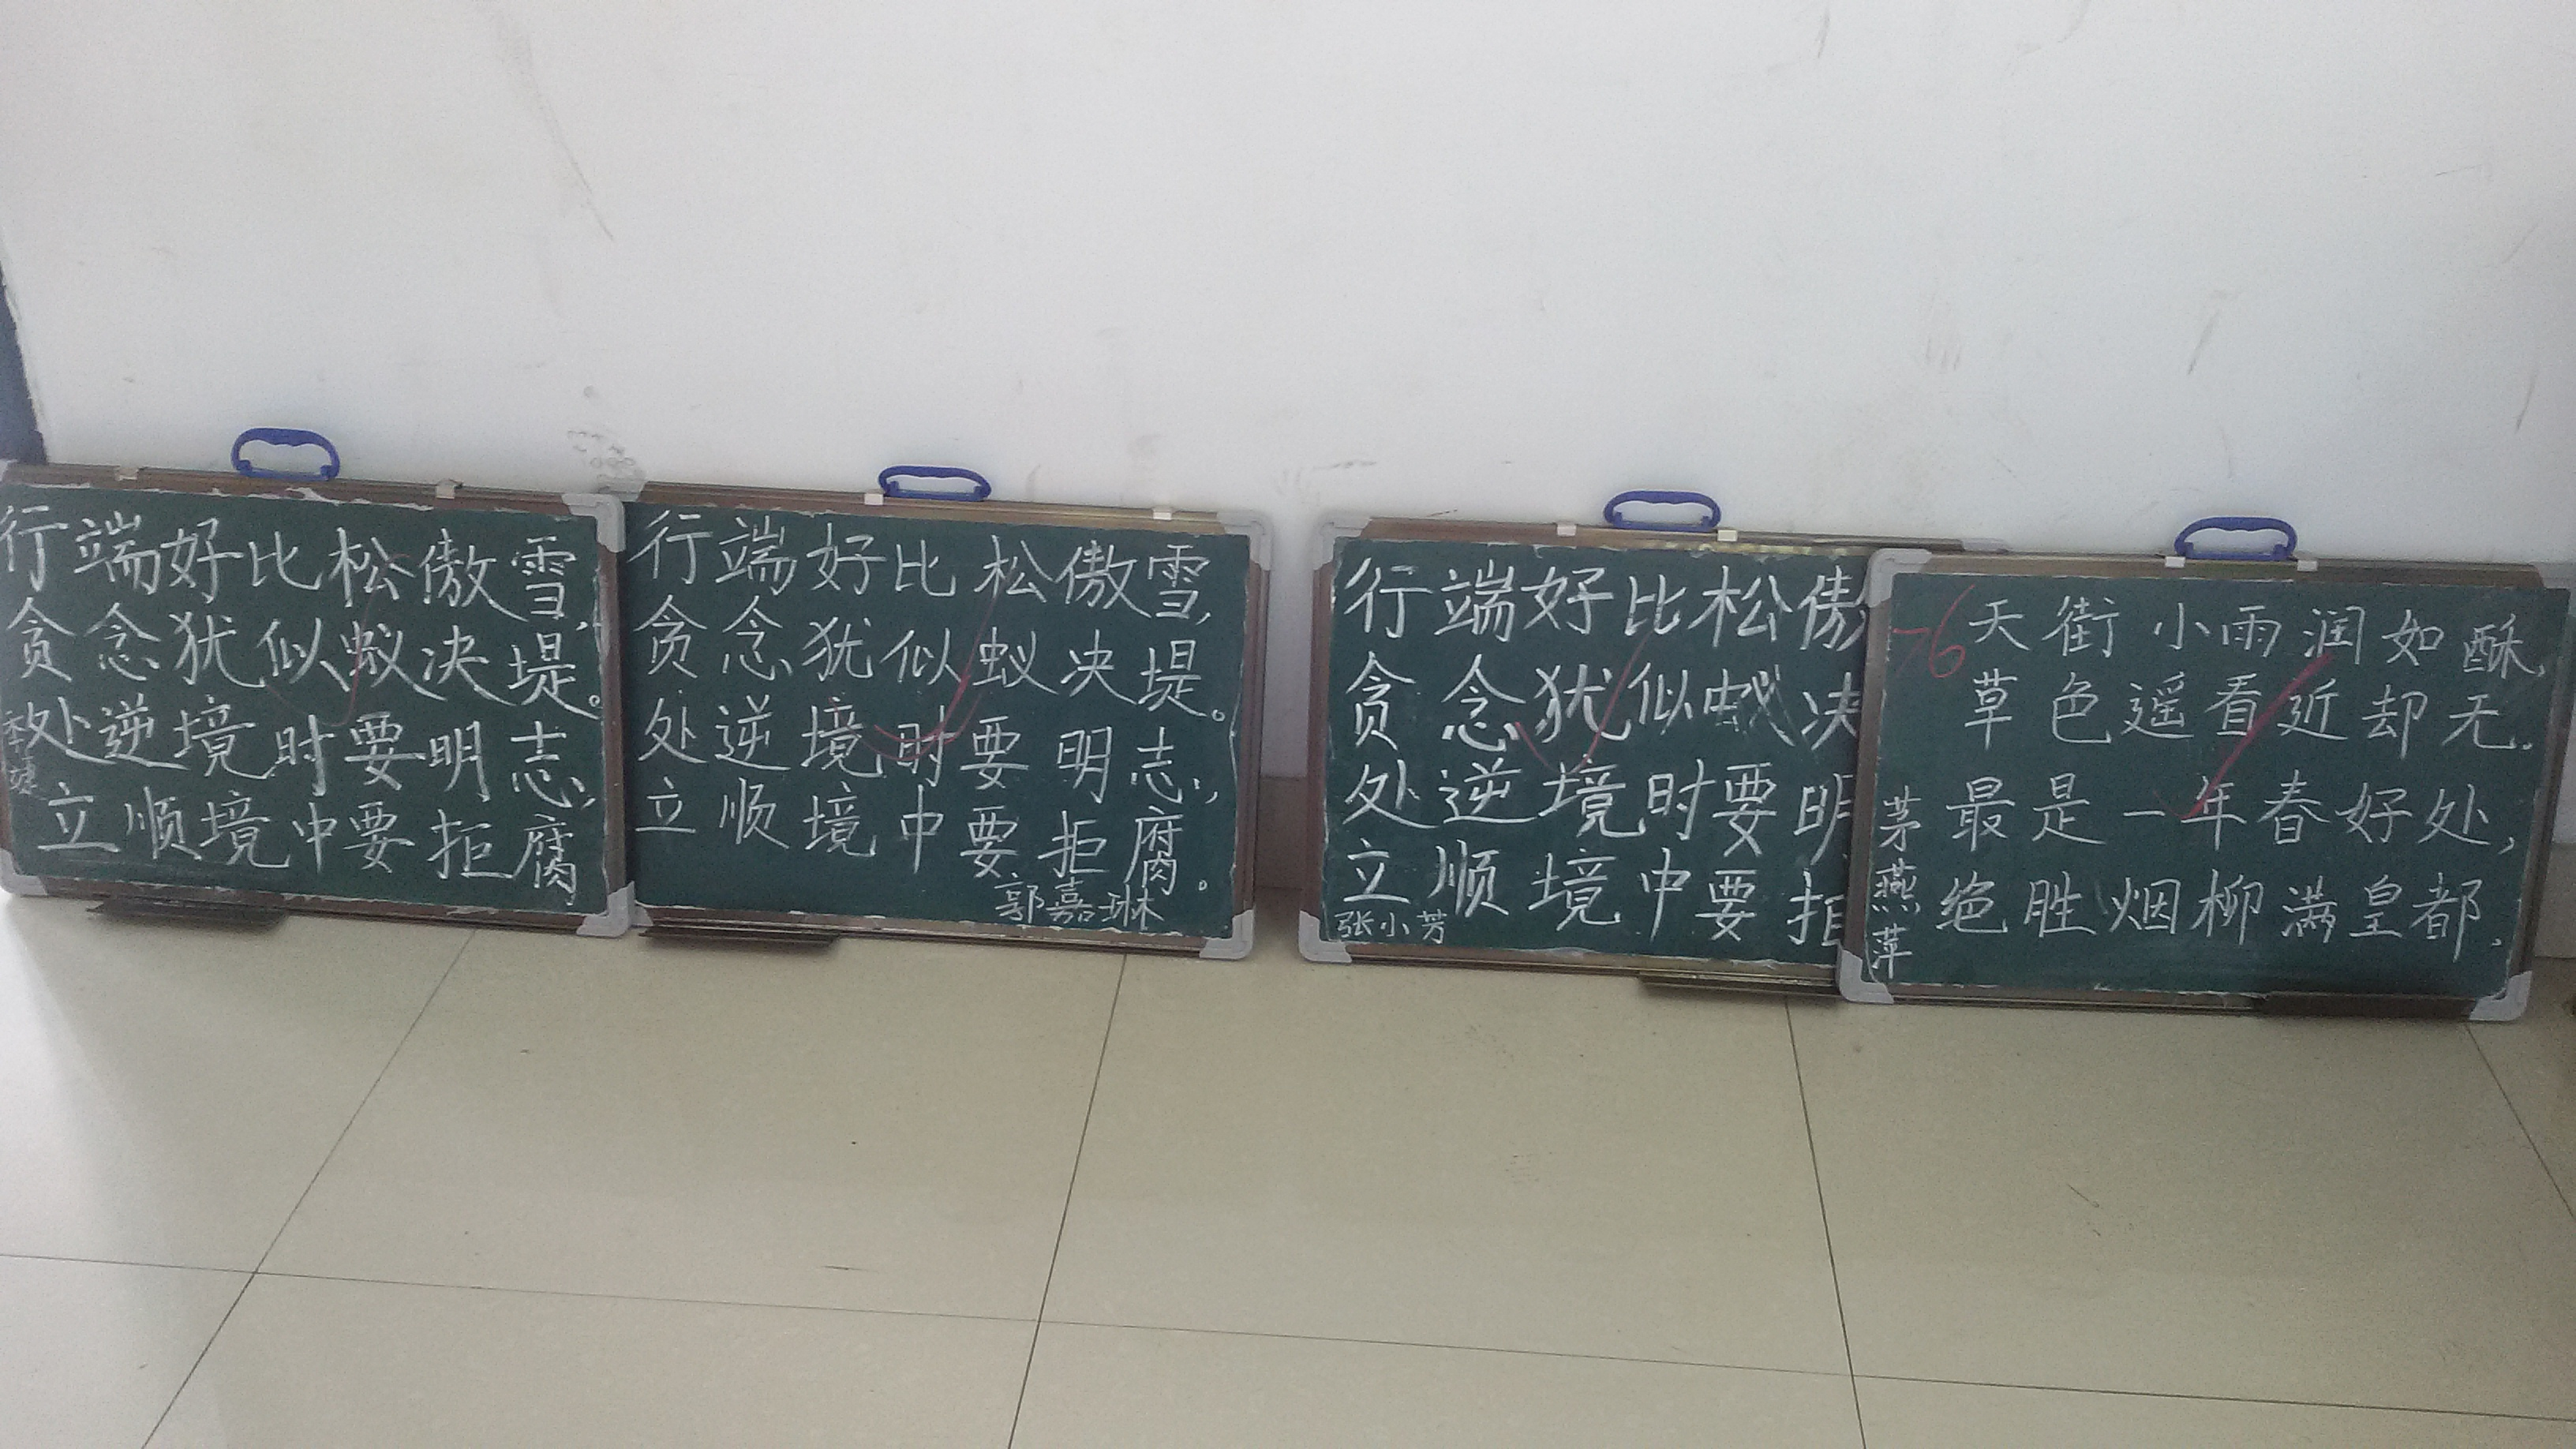 行端好比松傲雪,
贪念犹似蚁决堤。
处逆境时要明志,
立顺境中要拒腐
李婕
行端好比松傲雪,
贪念犹似蚁决堤。
处逆境时要明志,
立顺境中要拒腐。
郭嘉琳
行端好比松傲
贪念犹似蚁决
处逆境时要明
立顺境中要拒
张小芳
76
天街小雨润如酥,
草色遥看近却无.
最是一年春好处,
绝胜烟柳满皇都.
茅燕萍